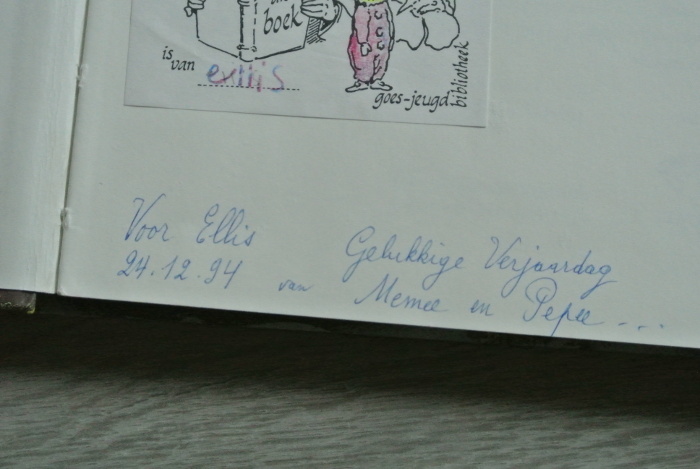 boek
is
van ellis
goes-jeugd
bibliotheek
Voor Ellis Gelukkige Verjaardag
24.12.94 van Memee en Pepee ...